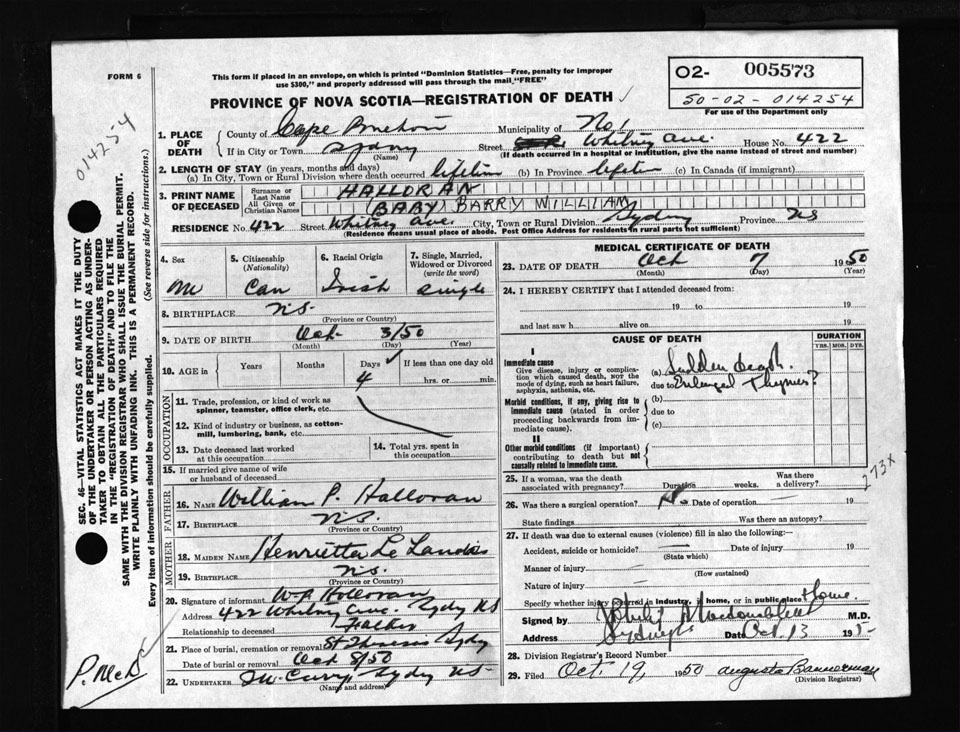 FORM 6
This form if placed in an envelope, on which is printed "Dominion Statistics—Free, penalty for improper
use $300," and properly addressed will pass through the mail "FREE"
02- 005573
50-02-014254
For use of the Department only
PROVINCE OF NOVA SCOTIA—REGISTRATION OF DEATH
014254
1. PLACE OF DEATH
County of Cape Breton Municipality of No 1
If in City or Town Sydney Street Whitney Ave. House No. 422
(Name) (If death occurred in a hospital or institution, give the name instead of street and number)
2. LENGTH OF STAY (in years, months and days)
(a) In City, Town or Rural Division where death occurred lifetime (b) In Province lifetime (c) In Canada (if immigrant)
3. PRINT NAME OF DECEASED
Surname or Last Name HALLORAN
All Given or Christian Names (BABY) BARRY WILLIAM
RESIDENCE No. 422 Street Whitney Ave. City, Town or Rural Division Sydney Province NS
(Residence means usual place of abode. Post Office Address for residents in rural parts not sufficient)
4. Sex
M
5. Citizenship (Nationality)
Can
6. Racial Origin
Irish
7. Single, Married, Widowed or Divorced (write the word)
single
8. BIRTHPLACE N.S.
(Province or Country)
9. DATE OF BIRTH Oct 3/50
(Month) (Day) (Year)
10. AGE in Years Months Days If less than one day old
4 hrs. or min.
OCCUPATION
11. Trade, profession, or kind of work as
spinner, teamster, office clerk, etc.
12. Kind of industry or business, as cotton-
mill, lumbering, bank, etc.
13. Date deceased last worked
at this occupation
14. Total yrs. spent in
this occupation
15. If married give name of wife
or husband of deceased
FATHER
16. NAME William P. Halloran
17. BIRTHPLACE N.S.
(Province or Country)
MOTHER
18. MAIDEN NAME Henrietta Le
19. BIRTHPLACE N.S.
(Province or Country)
20. Signature of informant W.P. Halloran
Address 422 Whitney Ave. Sydney NS
Relationship to deceased Father
21. Place of burial, cremation or removal Sydney
Date of burial or removal Oct 8/50
22. UNDERTAKER Curry, Sydney NS
(Name and address)
MEDICAL CERTIFICATE OF DEATH
23. DATE OF DEATH Oct 7 1950
(Month) (Day) (Year)
24. I HEREBY CERTIFY that I attended deceased from:
19 to 19
and last saw h alive on 19
CAUSE OF DEATH
DURATION
YRS. MOS. DYS.
I
Immediate cause
Give disease, injury or complica-
tion which caused death, NOT the
mode of dying, such as heart failure,
asphyxia, asthenia, etc.
(a) Sudden death.
due to Enlarged Thymus?
Morbid conditions, if any, giving rise to
immediate cause (stated in order
proceeding backwards from im-
mediate cause).
(b)
due to
(c)
II
Other morbid conditions (if important)
contributing to death but not
causally related to immediate cause.
273x
25. If a woman, was the death
associated with pregnancy? Duration weeks. Was there a delivery?
26. Was there a surgical operation? No Date of operation 19
State findings Was there an autopsy?
27. If death was due to external causes (violence) fill in also the following:
Accident, suicide or homicide? Date of injury 19
(State which)
Manner of injury
(How sustained)
Nature of injury
Specify whether injury occurred in industry, in home, or in public place Home.
Signed by M.D.
Address Sydney Date Oct. 13 195-
28. Division Registrar's Record Number
29. Filed Oct. 19, 1950 Augusta Bannerman
(Division Registrar)
SEC. 46—VITAL STATISTICS ACT MAKES IT THE DUTY
OF THE UNDERTAKER OR PERSON ACTING AS UNDER-
TAKER TO OBTAIN ALL THE PARTICULARS REQUIRED
IN THE "REGISTRATION OF DEATH" AND TO FILE THE
SAME WITH THE DIVISION REGISTRAR WHO SHALL ISSUE THE BURIAL PERMIT.
WRITE PLAINLY WITH UNFADING INK. THIS IS A PERMANENT RECORD.
Every item of information should be carefully supplied. (See reverse side for instructions.)